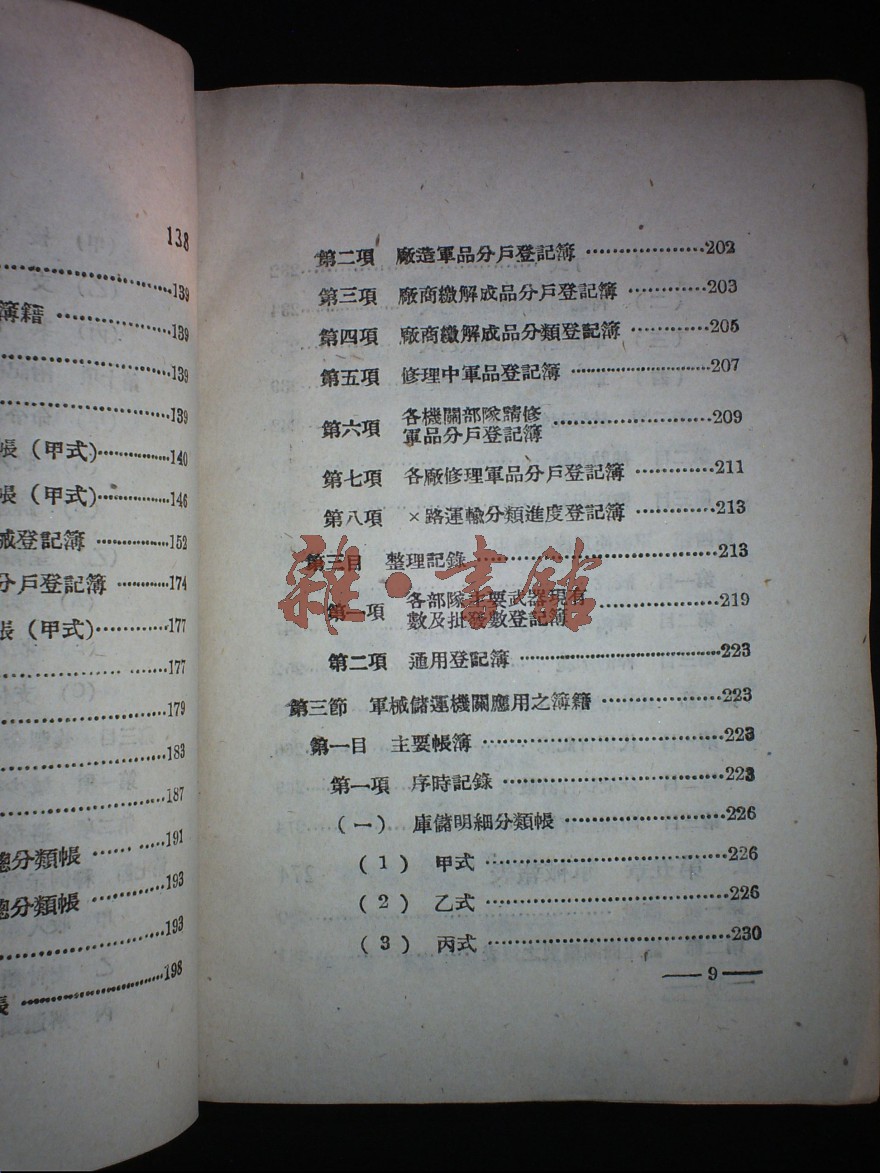 138
139
簿籍 139
139
139
帳（甲式） 140
帳（甲式） 146
械登記簿 152
分戶登記簿 174
帳（甲式） 177
177
179
183
187
總分類帳 191
總分類帳 193
193
帳 198
第二項 廠造軍品分戶登記簿 202
第三項 廠商繳解成品分戶登記簿 203
第四項 廠商繳解成品分類登記簿 205
第五項 修理中軍品登記簿 207
第六項 各機關部隊請修
軍品分戶登記簿 209
第七項 各廠修理軍品分戶登記簿 211
第八項 ×路運輸分類進度登記簿 213
第三目 整理記錄 213
第一項 各部隊主要武器現有
數及批發數登記簿 219
第二項 通用登記簿 223
第三節 軍械儲運機關應用之簿籍 223
第一目 主要帳簿 223
第一項 序時記錄 223
（一） 庫儲明細分類帳 226
（1） 甲式 226
（2） 乙式 226
（3） 丙式 230
— 9 —
雜·書館